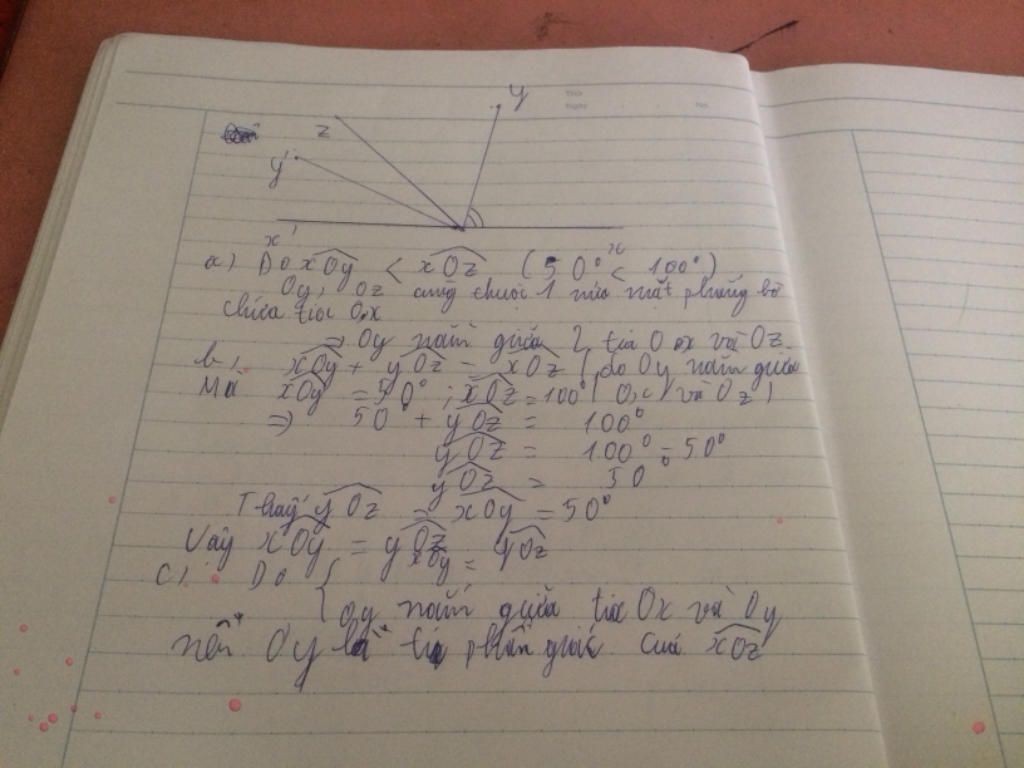 y
z
y'
x'
x
a) Do xOy < xOz (50° < 100°)
Oy, Oz cùng thuộc 1 nửa mặt phẳng bờ
chứa tia Ox
=> Oy nằm giữa 2 tia Ox và Oz
b, xOy + yOz = xOz (do Oy nằm giữa
Mà xOy = 50° ; xOz = 100° Ox và Oz)
=> 50° + yOz = 100°
yOz = 100° - 50°
yOz = 50°
Thấy yOz = xOy = 50°
Vậy xOy = yOz
c) Do { xOy = yOz
Oy nằm giữa tia Ox và Oy
nên Oy là tia phân giác của xOz